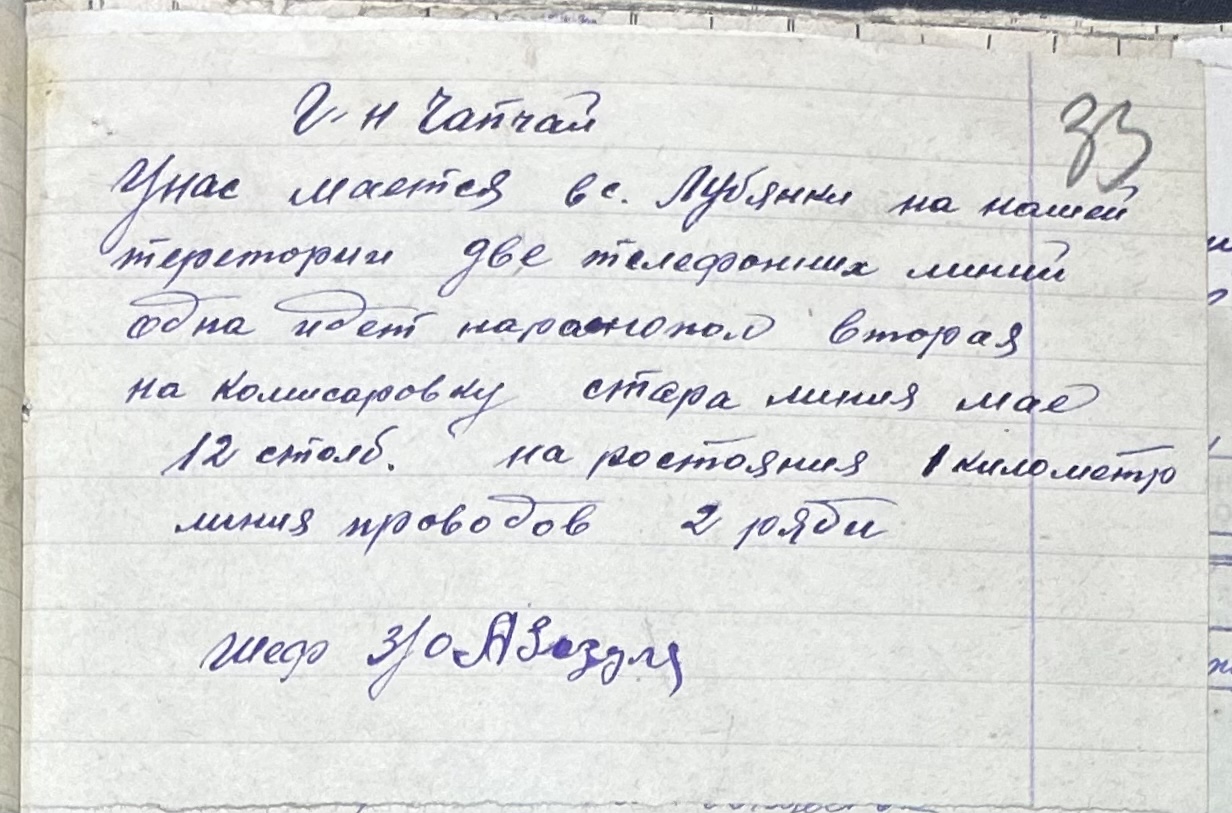 Г-н Чапчай
33
Унас мается в с. Лубянки на нашей
територии две телефонних линий
одна идет вторая
на Комисаровку стара линия мае
12 столб. на ростояния 1 километр
линия проводов 2 ряди
шеф З/О А Зозуля